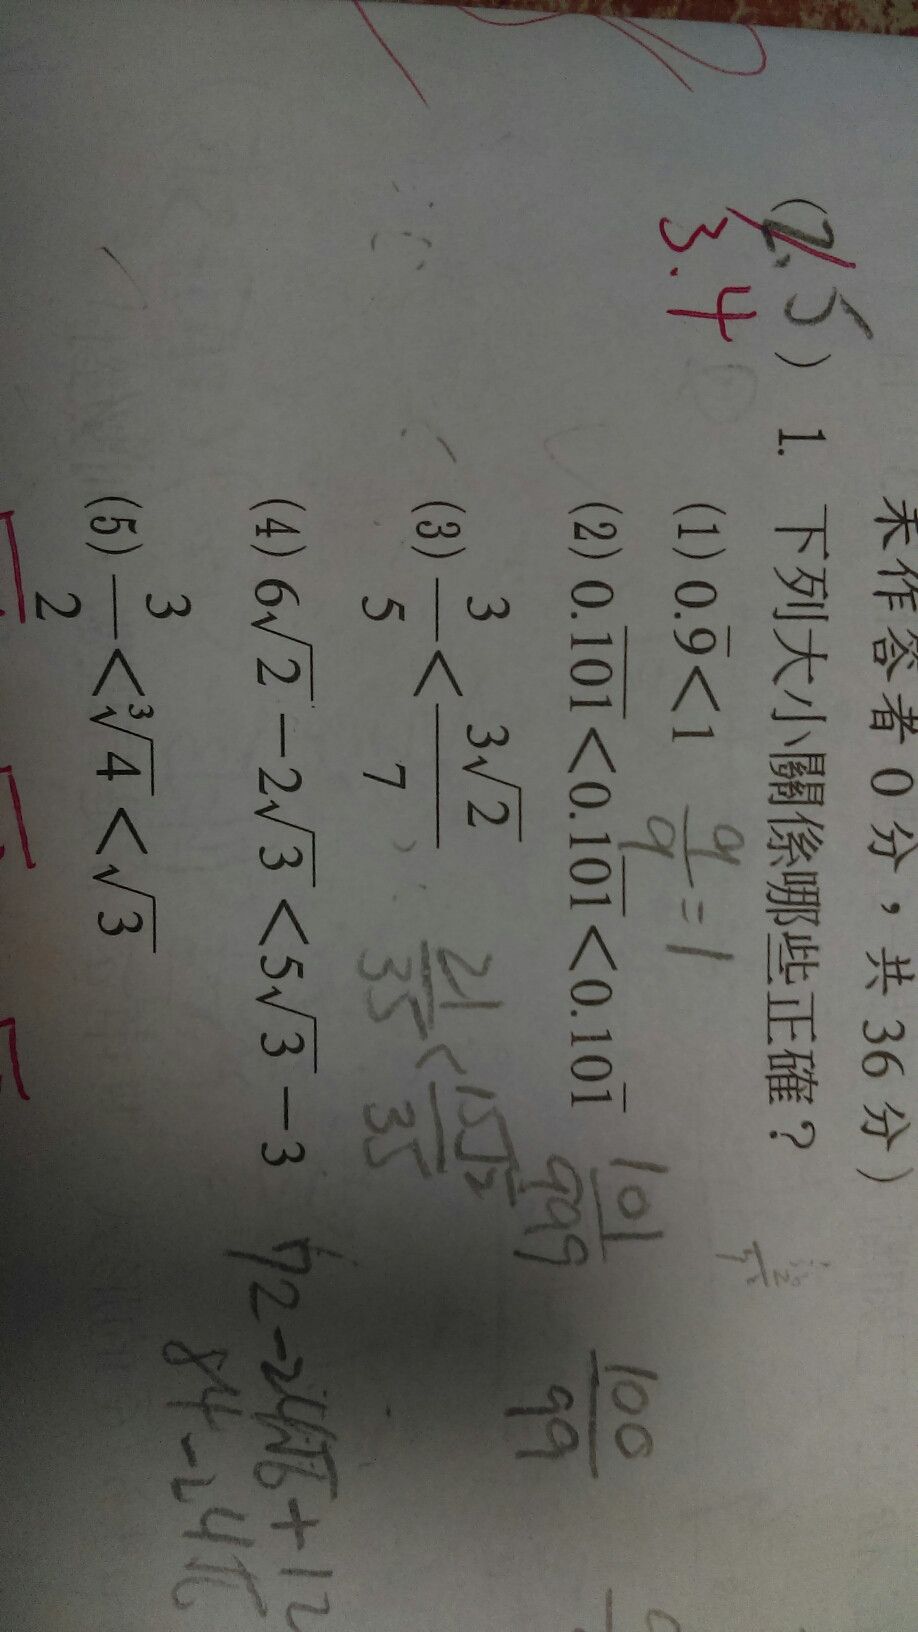 未作答者0分，共36分）
(2、5) 1. 下列大小關係哪些正確？
3.4
(1) 0.9̅<1
9/9=1
(2) 0.1̅0̅1̅<0.10̅1̅<0.101̅
101/999
100/99
(3) 3/5<3√2/7
21/35<15√2/35
(4) 6√2−2√3<5√3−3
72-24√6+12
84-24√6
(5) 3/2<³√4<√3